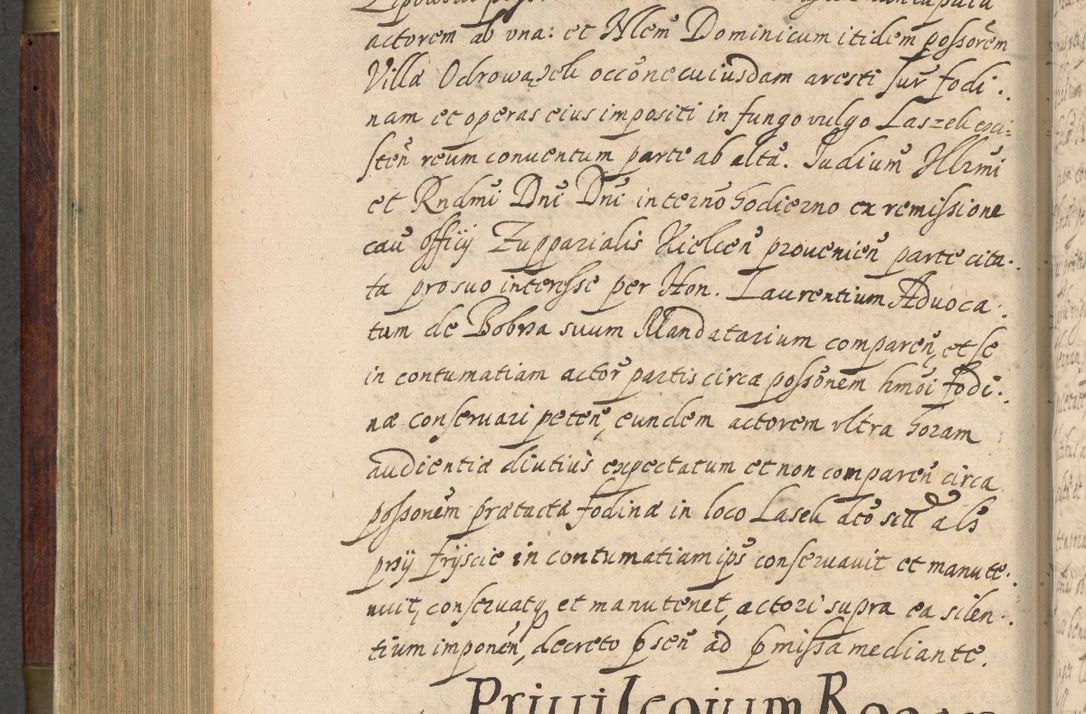 actorem ab vna: et Nlem Dominicum itidem possorem
Villa Odrowązek occone cuiusdam aresti sur fodi:
nam et operas eius impositi in fungo vulgo Laszek exi=
sten reum conuentum parte ab altā. Iudium Illrmi
et Rndmi Dni Dni in terno hodierno ex remissione
cau offiij Zupparialis Kielcen prouenien parte cita:
ta pro suo interesse per Hon. Laurentium Aduoca:
tum de Bobrza suum Mandatarium comparen, et se
in contumatiam actor partis circa possonem hmoi fodi:
næ conseruari peten, eundem actorem vltra horam
audientiæ diutius expectatum et non comparen circa
possonem prætacta fodinæ in loco Lasek dto siti als
przy fryscie in contumatiam ips conseruauit et manute:
nuit, conseruatq et manutenet, actori supra ea silen:
tium imponen, decreto psen ad pmissa mediante.
Priuilegium